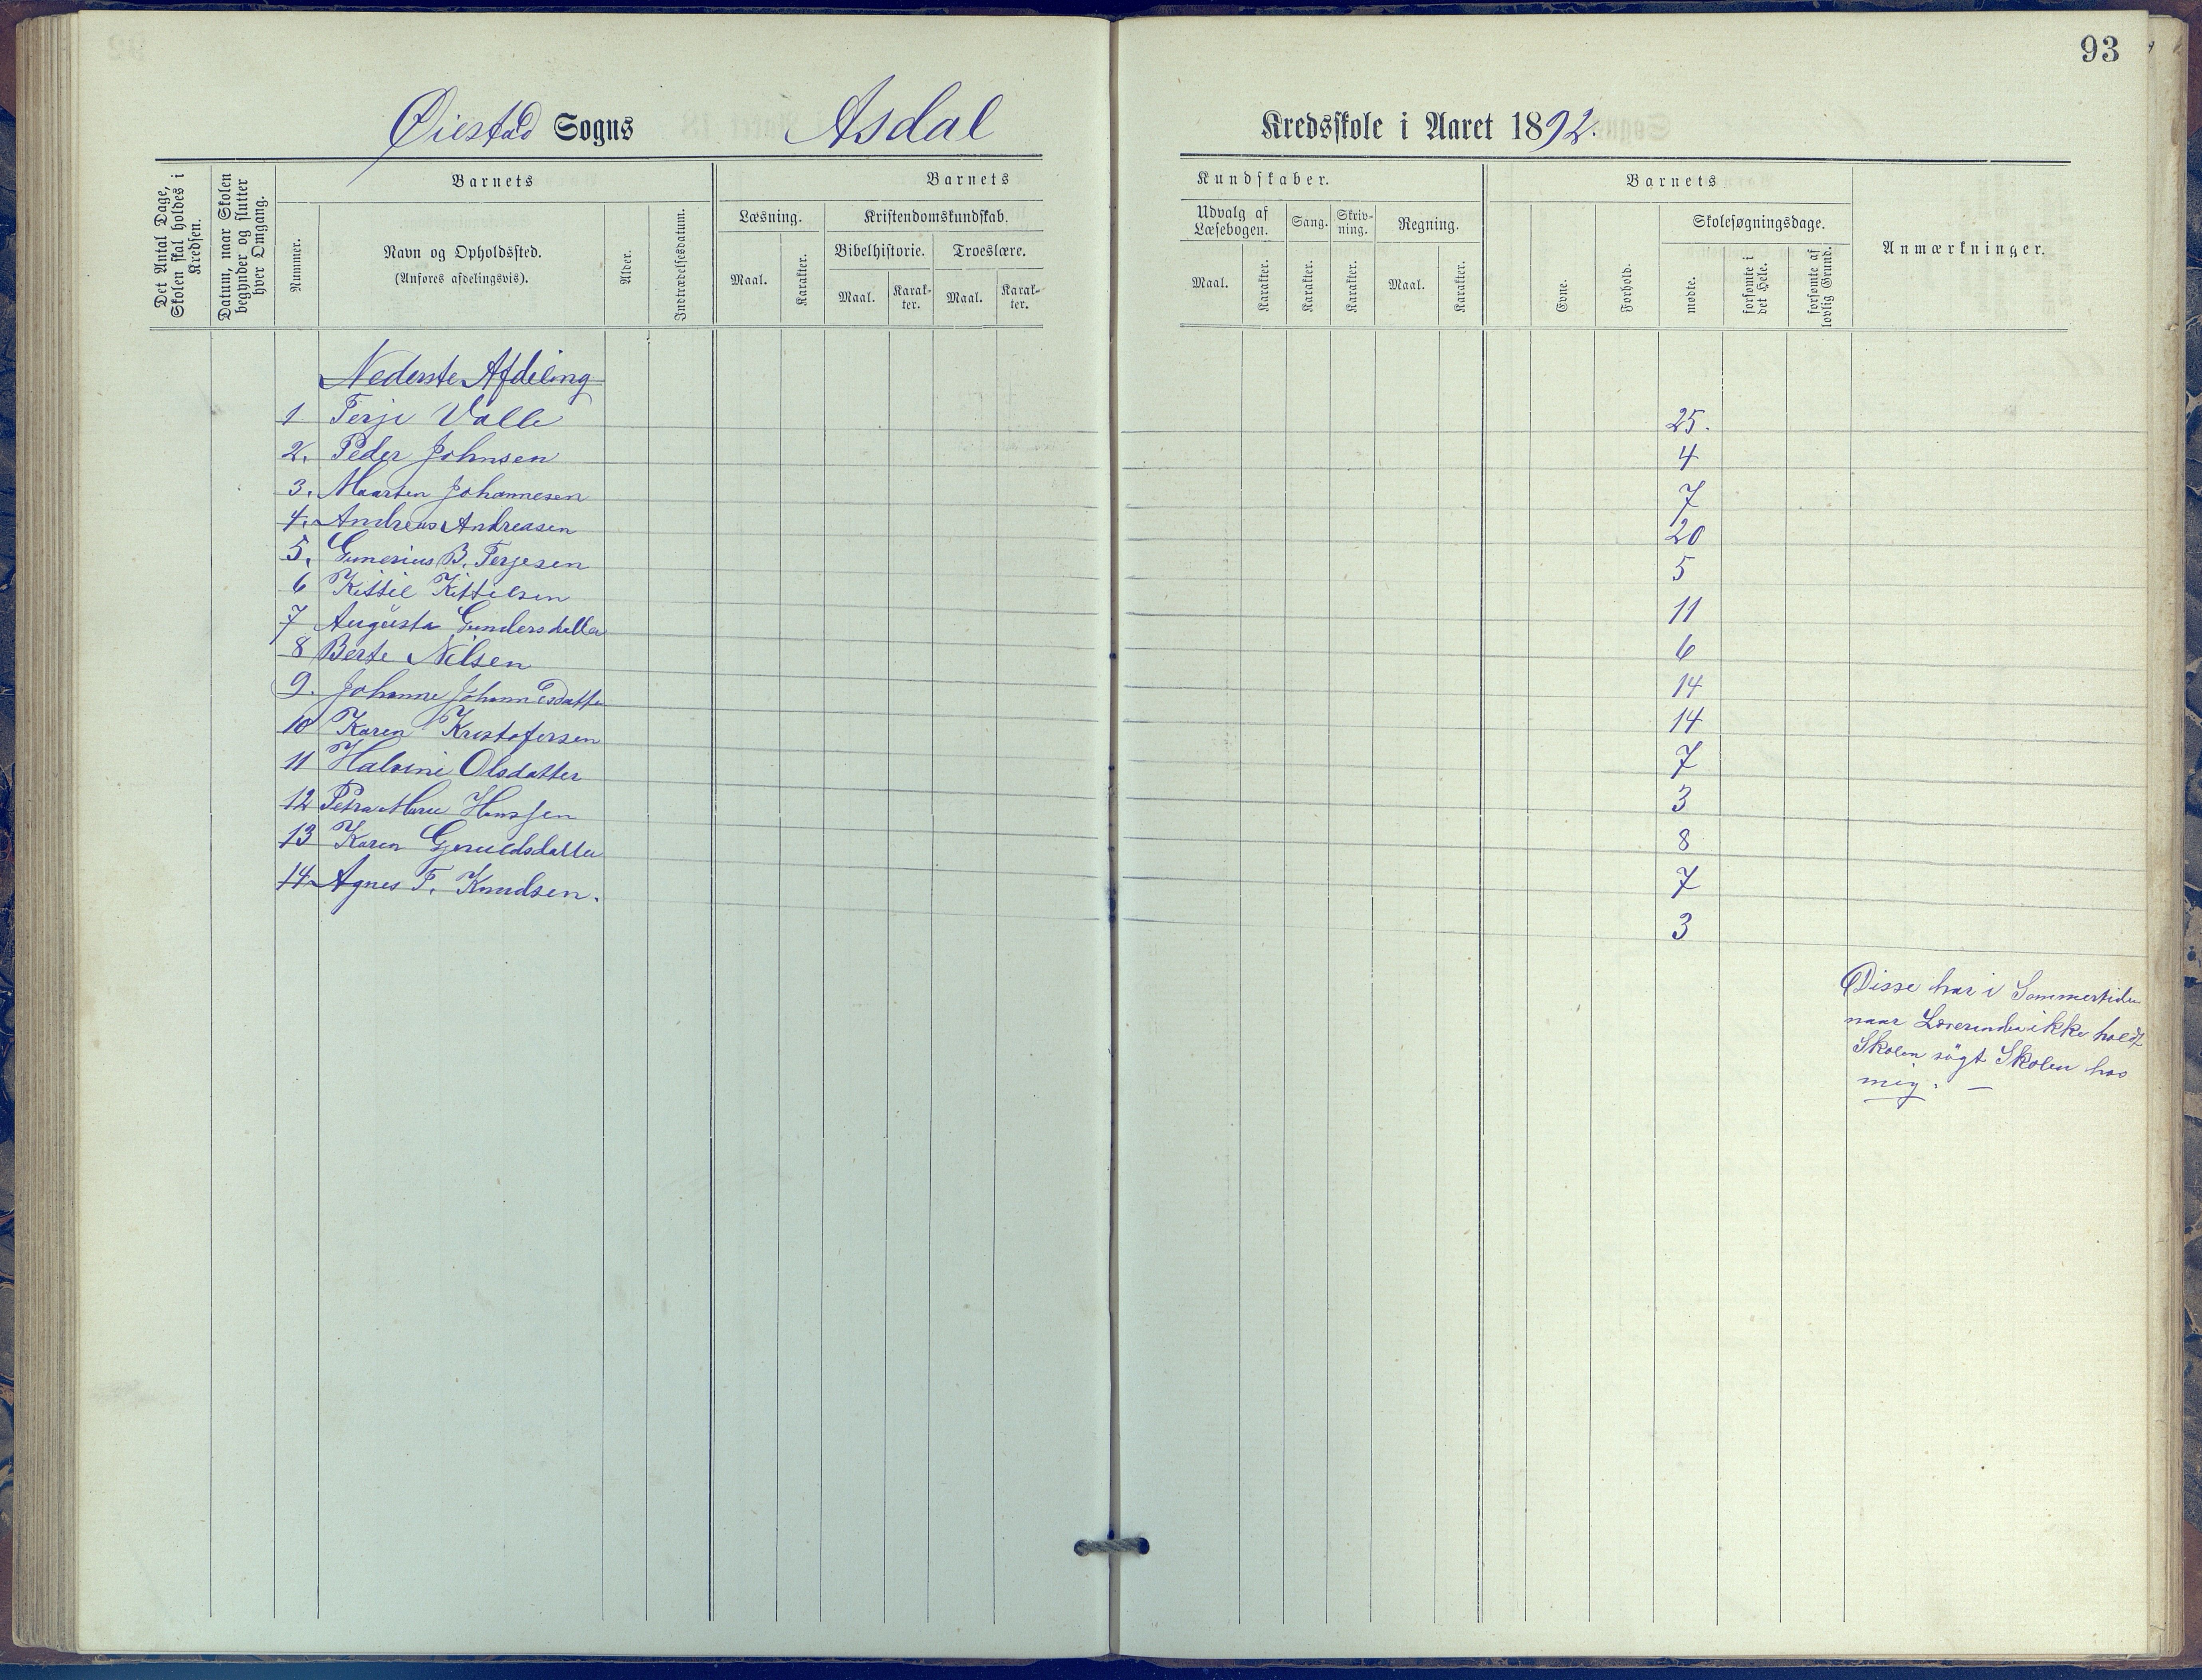 93
Øiestad Sogns Asdal Kredsskole i Aaret 1892.
Det Antal Dage, Skolen skal holdes i Kredsen.
Datum, naar Skolen begynder og slutter hver Omgang.
Barnets
Nummer.
Navn og Opholdssted.
(Anføres afdelingsvis).
Alder.
Indtrædelsesdatum.
Barnets
Læsning.
Maal.
Karakter.
Kristendomskundskab.
Bibelhistorie.
Maal.
Karak-
ter.
Troeslære.
Maal.
Karak-
ter.
Kundskaber.
Udvalg af
Læsebogen.
Maal.
Karakter.
Sang.
Karakter.
Skriv-
ning.
Karakter.
Regning.
Maal.
Karakter.
Barnets
Evne.
Forhold.
Skolesøgningsdage.
mødte.
forsømte i det Hele.
forsømte af lovlig Grund.
Anmærkninger.
Nederste Afdeling
1 Terje Valle 25.
2. Peder Johnsen 4
3. Maarten Johannesen 7
4. Andreas Andreasen 20
5. Gunerius B. Terjesen 5
6 Kittil Kittilsen 11
7 Augusta Gundersdatter 6
8 Berte Nilsen 14
9. Johanne Johannesdatter 14
10 Karen Kristofersen 7
11 Halvine Olsdatter 3
12 Petra Marie Hanssen 8
13 Karen Gjeruldsdatter 7
14 Agnes T. Knudsen. 3
Disse har i Sommertiden
naar Lærerinden ikke holdt
Skolen søgt Skolen hos
mig. —